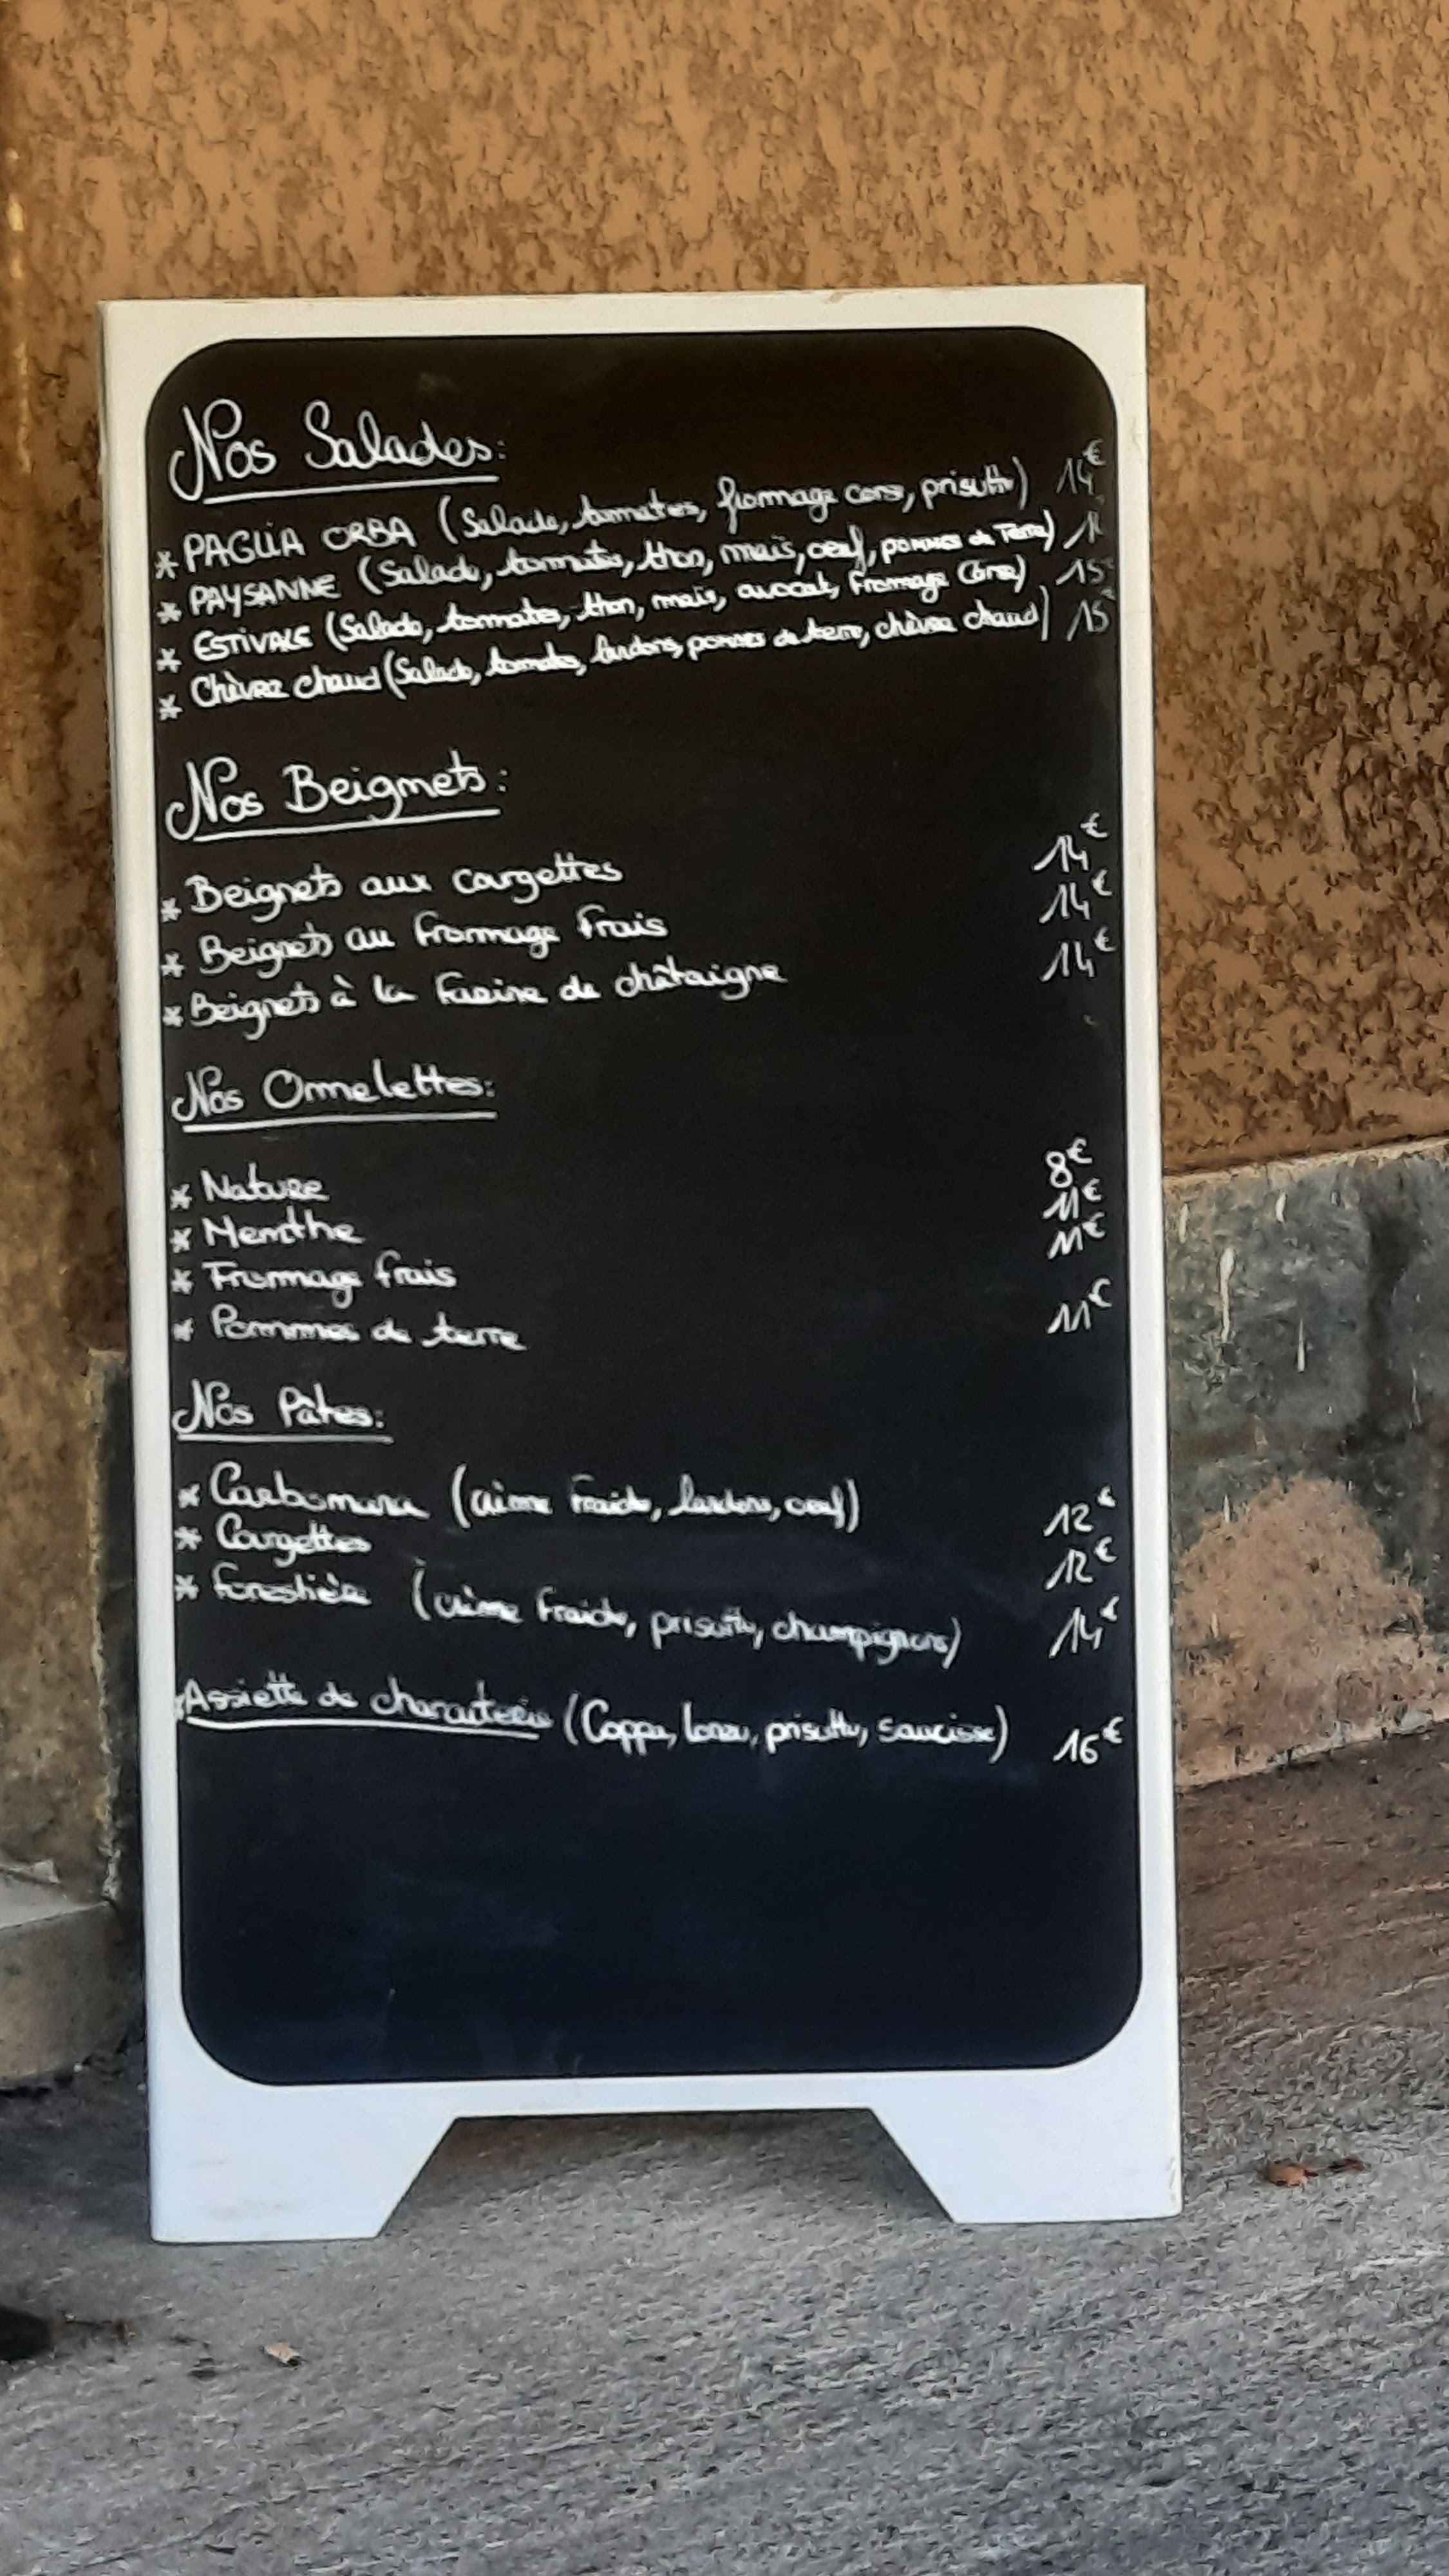 Nos Salades:
* PAGLIA ORBA (Salade, tomates, fromage corse, prisuttu) 14€
* PAYSANNE (Salade, tomates, thon, maïs, oeuf, pommes de Terre)
* ESTIVALE (Salade, tomates, thon, maïs, avocat, Fromage Corse) 15€
* Chèvre chaud (Salade, tomates, lardons, pommes de terre, chèvre chaud) 15€
Nos Beignets:
* Beignets aux courgettes 14€
* Beignets au fromage frais 14€
* Beignets à la farine de châtaigne 14€
Nos Omelettes:
* Nature 8€
* Menthe 11€
* Fromage frais 11€
* Pommes de terre 11€
Nos Pâtes:
* Carbonara (crème fraîche, lardons, oeuf) 12€
* Courgettes 12€
* Forestière (crème fraîche, prisuttu, champignons) 14€
* Assiette de charcuterie (Coppa, lonzu, prisuttu, saucisse) 16€